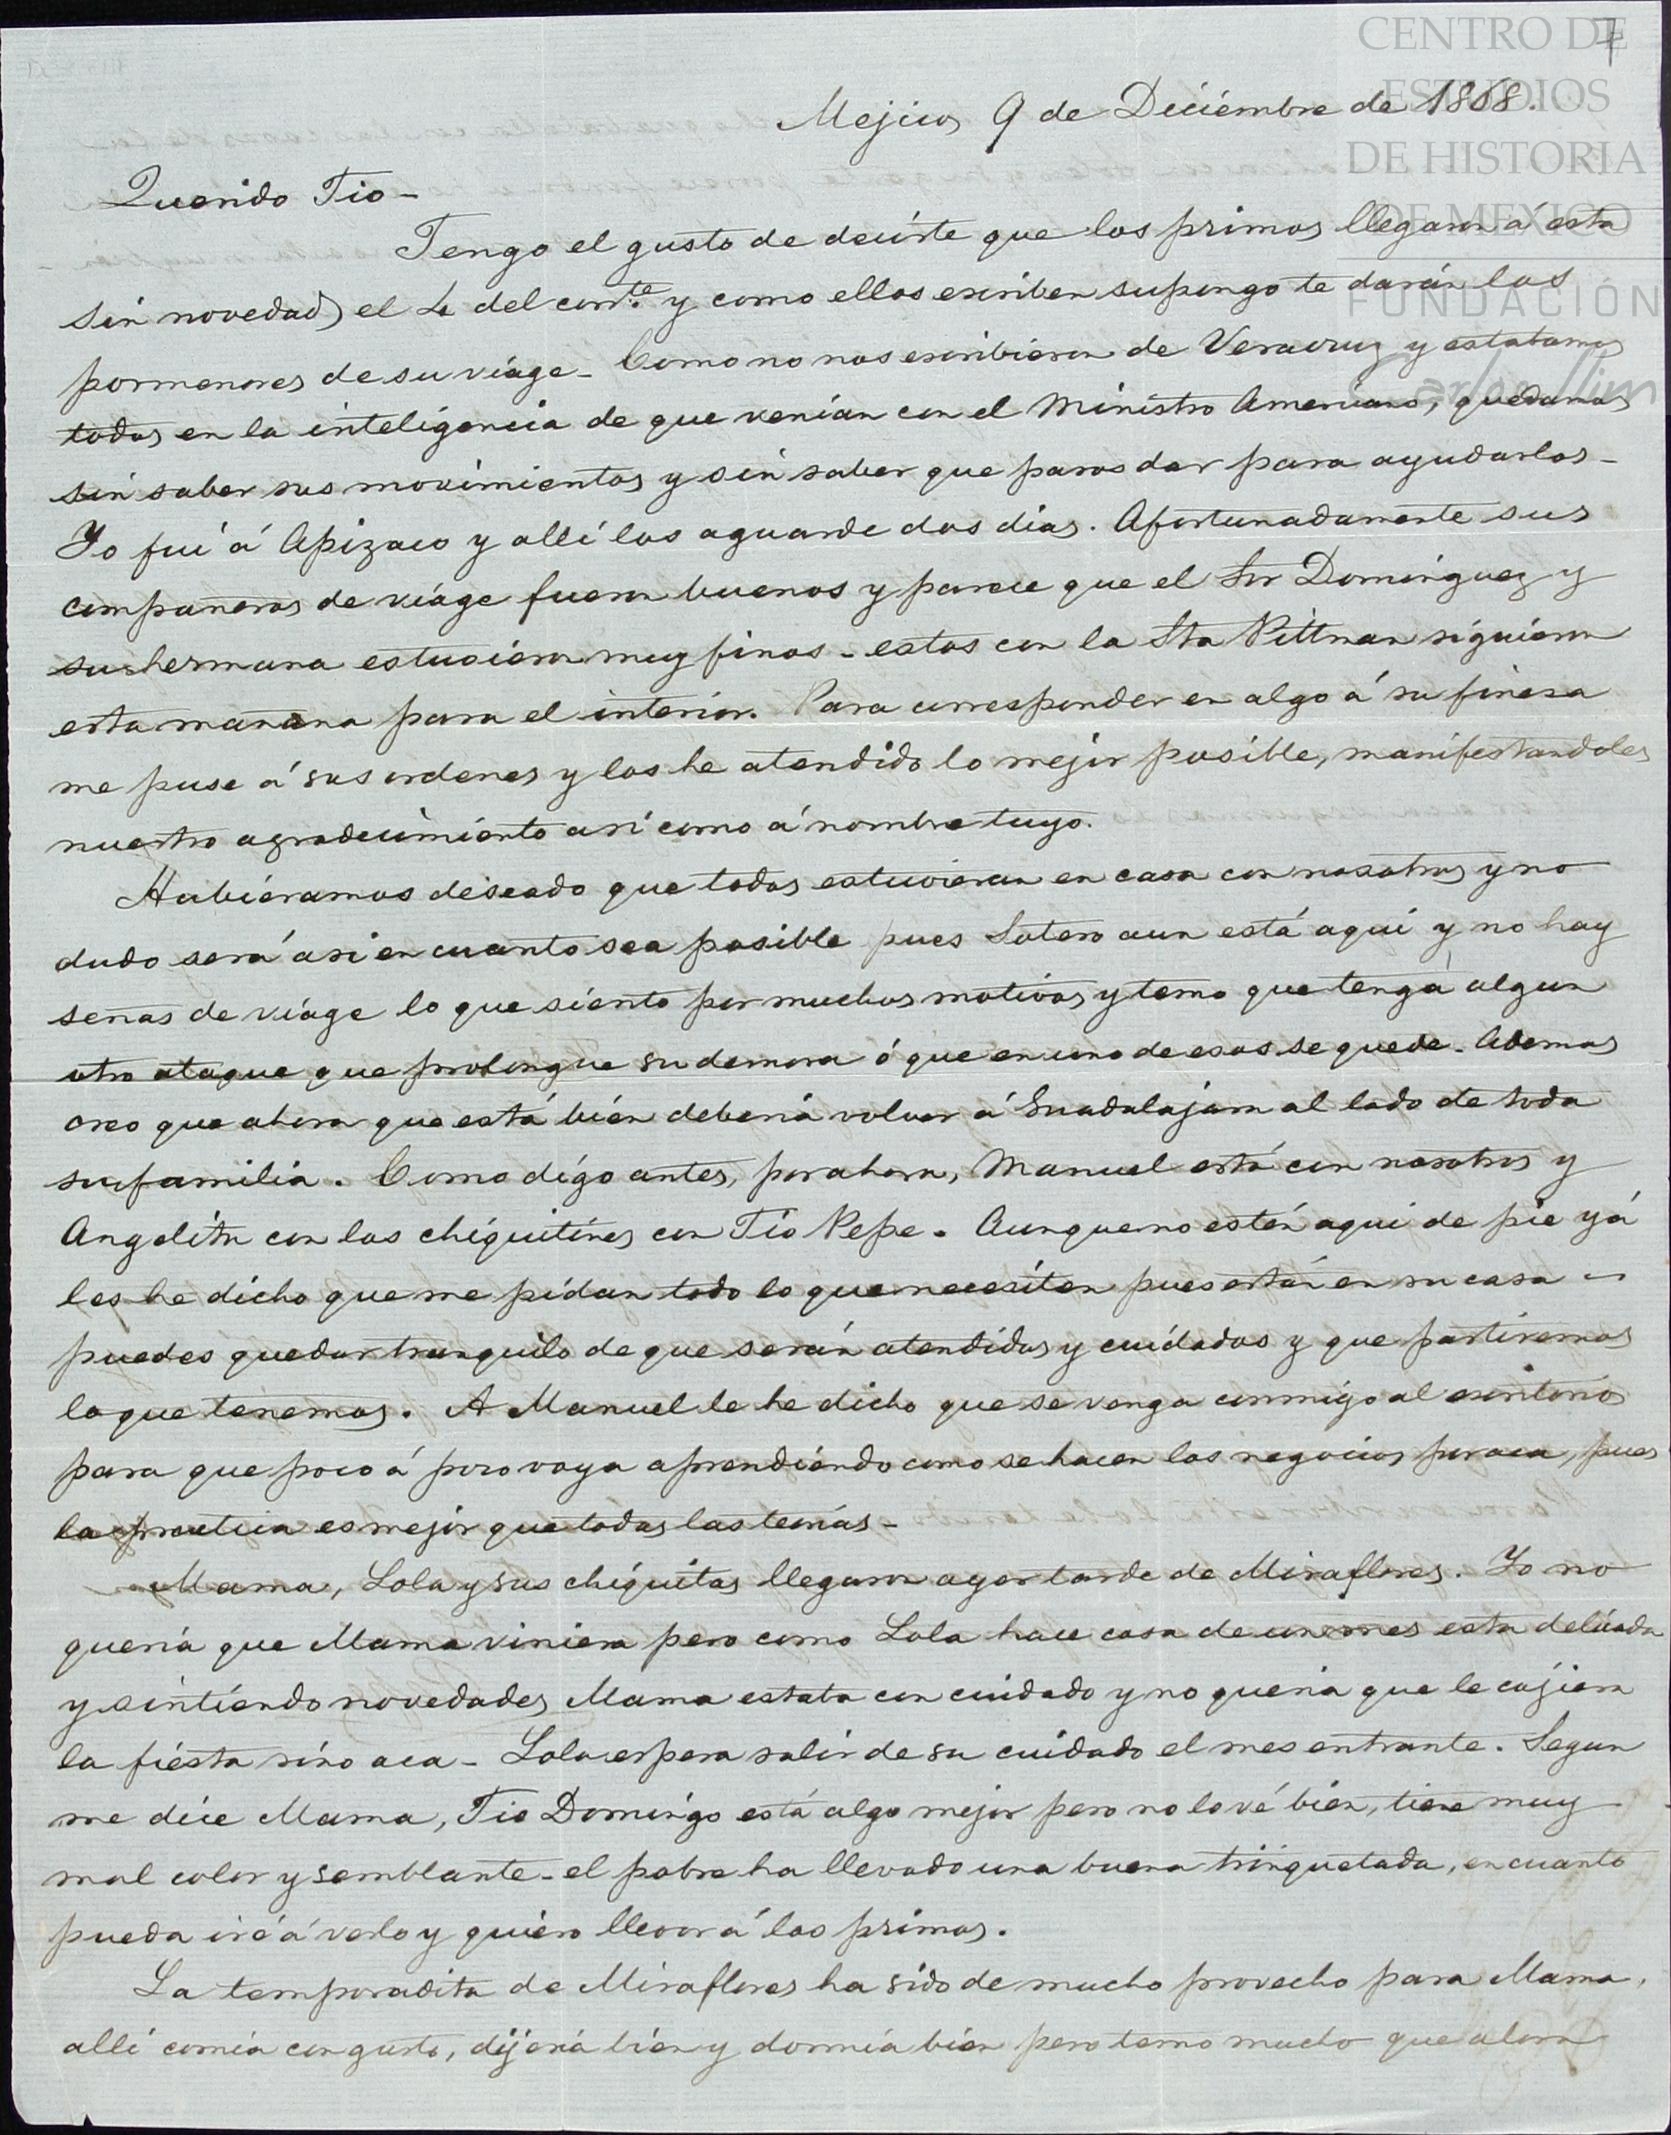 7
CENTRO DE
ESTUDIOS
DE HISTORIA
DE MEXICO
FUNDACIÓN
Carlos Slim
Mejico, 9 de Diciembre de 1868.
Querido Tio -
Tengo el gusto de decirte que los primos llegaron á esta
sin novedad el 4 del corrte. y como ellos escriben supongo te darán los
pormenores de su viáge - Como no nos escribieron de Veracruz y estabamos
todos en la inteligencia de que venian con el Ministro Americano, quedamos
sin saber sus movimientos y sin saber que pasos dar para ayudarlos -
Yo fui á Apizaco y alli los aguarde dos dias. Afortunadamente sus
compañeros de viáge fueron buenos y parece que el Sor Dominguez y
su hermana estuvieron muy finos - estos con la Sta Pittman siguieron
esta mañana para el interior. Para corresponder en algo á su finesa
me puse á sus ordenes y los he atendido lo mejor posible, manifestandoles
nuestro agradecimiento asi como á nombre tuyo.
Hubieramos deseado que todos estuvieran en casa con nosotros y no
dudo será asi en cuanto sea posible pues Sotero aun está aqui y no hay
señas de viáge lo que siento por muchos motivos y temo que tenga algun
otro ataque que prolongue su demora ó que en uno de esos se quede. Ademas
creo que ahora que está bién deberia volver á Guadalajara al lado de toda
su familia. Como digo antes, por ahora, Manuel está con nosotros y
Angelita con los chiquitines con Tio Pepe. Aunque no estén aqui de pie yá
les he dicho que me pidan todo lo que necesiten pues están en su casa -
puedes quedar tranquilo de que serán atendidos y cuidados y que partiremos
lo que tenemos. A Manuel le he dicho que se venga conmigo al escritorio
para que poco á poco vaya aprendiéndo como se hacen los negocios por aca, pues
la practica es mejor que todas las teorias -
Mama, Lola y sus chiquitas llegaron ayer tarde de Miraflores. Yo no
queria que Mama viniera pero como Lola hace cosa de un mes esta delicada
y sintiendo novedades, Mama estaba con cuidado y no queria que le cojiera
la fiésta sino aca - Lola espera salir de su cuidado el mes entrante. Segun
me dice Mama, Tio Domingo está algo mejor pero no lo vé bien, tiene muy
mal color y semblante - el pobre ha llevado una buena trinquetada, en cuanto
pueda iré á verlo y quiero llevar á los primos.
La temporadita de Miraflores ha sido de mucho provecho para Mama,
alli comia con gusto, dijeria bien y dormia bien pero temo mucho que ahora